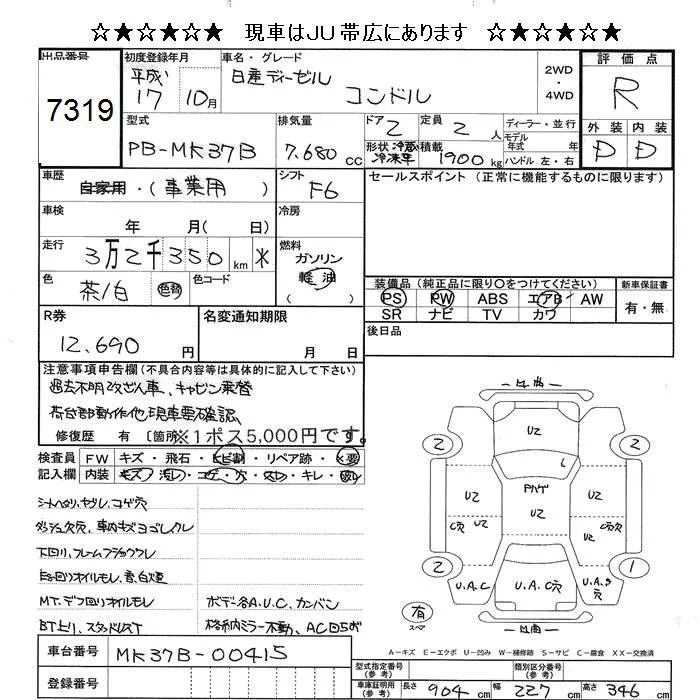 ☆★☆★☆★ 現車はJU帯広にあります ☆★☆★☆★
出品番号
7319
初度登録年月
平成
17 10月
車名・グレード
日産ディーゼル
コンドル
2WD
・
4WD
評価点
R
外装 内装
D D
型式
PB-MK37B
排気量
7.680 cc
ドア 2
定員 2 人
形状 冷蔵冷凍車
積載 1900 kg
ディーラー・並行
モデル年式 年式
ハンドル 左・右
車歴
自家用・(事業用)
シフト
F6
セールスポイント (正常に機能するものに限ります)
車検
年 月( 日)
冷房
走行
3万2千350 km ✕
燃料
ガソリン
軽油
( )
色
茶/白
色替
色コード
装備品(純正品に限り○をつけてください)
PS PW ABS エアB AW
SR ナビ TV カワ
新車保証書
有・無
R券
12.690 円
名変通知期限
月 日
後日品
注意事項申告欄(不具合内容等は具体的に記入して下さい)
過去不明改ざん車、キャビン乗替
荷台部動作他現車要確認
修復歴 有 〔箇所 ※1ポス5,000円です。
検査員記入欄
FW キズ・飛石・ヒビ割・リペア跡・✕要
内装 キズ・汚レ・コゲ・穴・スレ・キレ・
シートヘタリ、ヤブレ、コゲ穴
ダッシュ欠穴、車内キズヨゴレスレ
下回り、フレームフショクワレ
E/g回りオイルモレ、音、白煙
MT、デフ回りオイルモレ
BT上り、スタッドレス
ボデー各A.U.C、カンバン
格納ミラー不動、
2 U2 2
U2 U2
C穴 U2 U2 C穴
2 1
U.A.C U.A.C穴 U.A.S穴
有
スペア
A-キズ E-エクボ U-凹み W-補修跡 S-サビ C-腐食 XX-交換済
車台番号
MK37B-00415
登録番号
型式指定番号(参考)
類別区分番号(参考)
車庫証明用(参考) 長さ 904 cm 幅 227 cm 高さ 346 cm